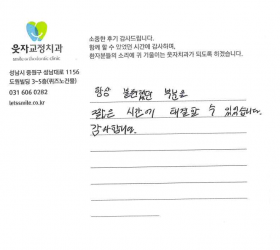 웃자교정치과
smile orthodontic clinic
성남시 중원구 성남대로 1156
드림빌딩 3~5층(퀴즈노건물)
031 606 0282
letssmile.co.kr
소중한 후기 감사드립니다.
함께 할 수 있었던 시간에 감사하며,
환자분들의 소리에 귀 기울이는 웃자치과가 되도록 하겠습니다.
항상 불편했던 부분을
짧은 시간에 해결할 수 있었습니다.
감사합니다.